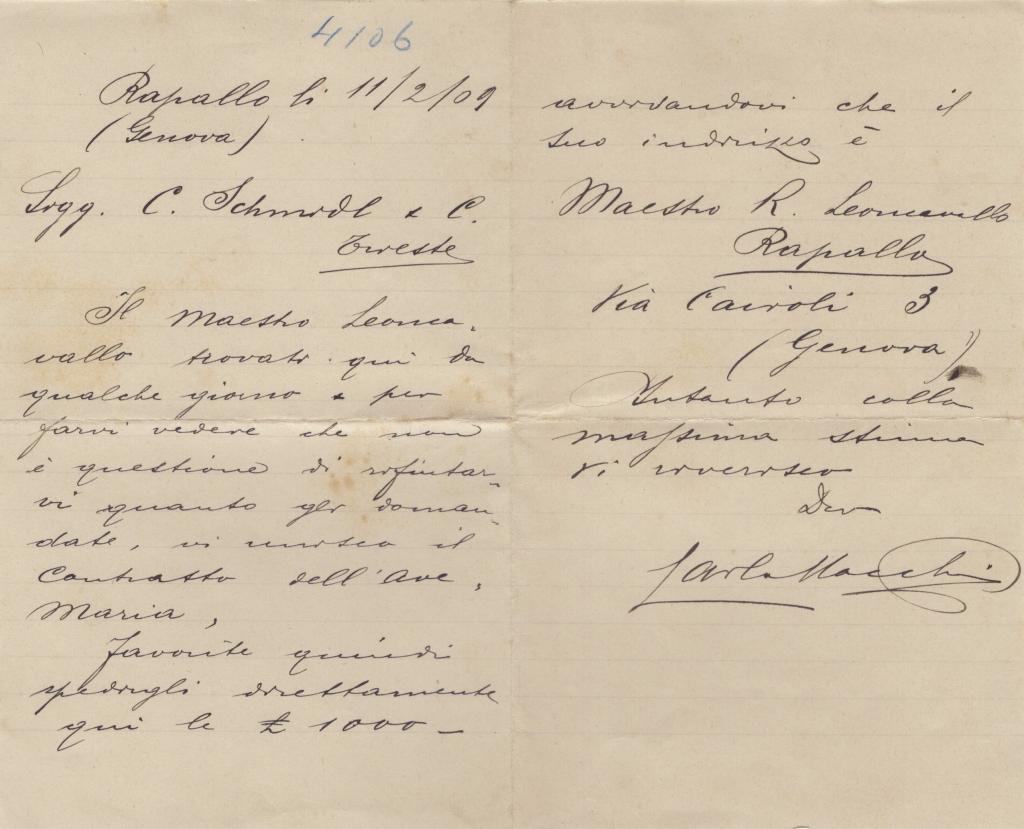 4106
Rapallo li 11/2/09
(Genova)
Sigg. C. Schmidl & C.
Trieste
Il Maestro Leonca-
vallo trovasi qui da
qualche giorno & per
farvi vedere che non
è questione di rifiutar-
vi quanto gli doman-
date, vi unisco il
Contratto dell'Ave
Maria,
Favorite quindi
spedirgli direttamente
qui le £ 1000 —
avvisandovi che il
suo indirizzo è
Maestro R. Leoncavallo
Rapallo
Via Cairoli 3
(Genova)
Intanto colla
massima stima
Vi riverisco
Dev
Carlo Macchi